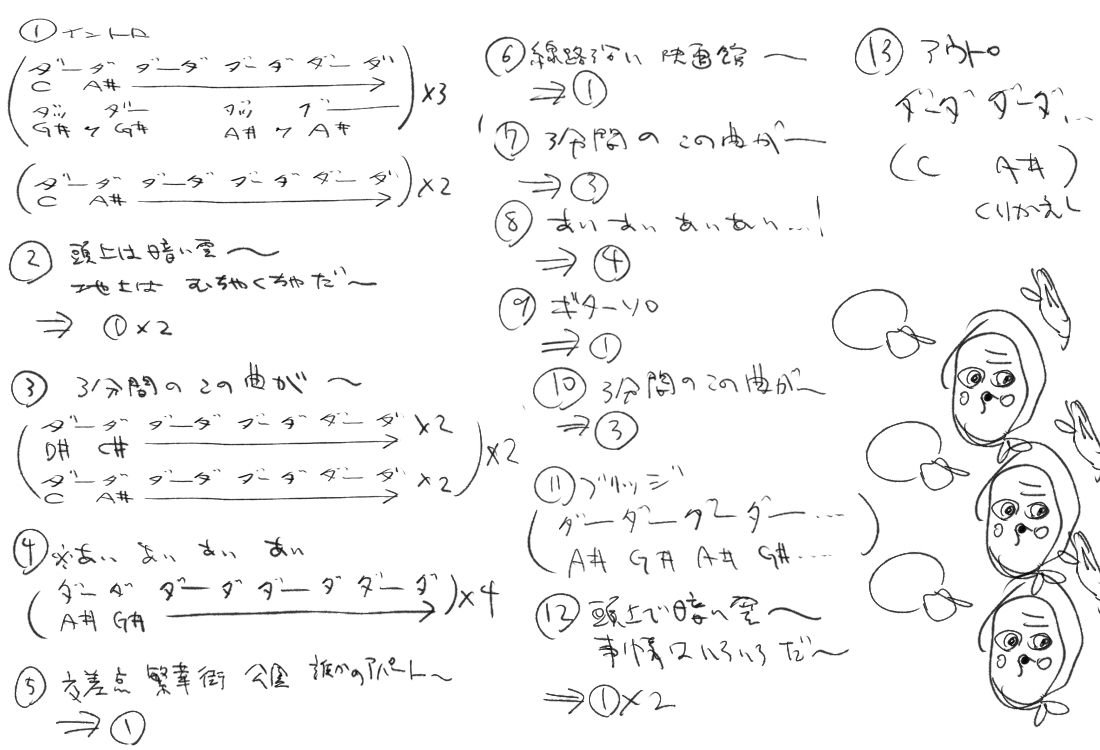 ① イントロ
ダーダ ダーダ ダーダ ダーダ
C A#
ダッ ダー ダッ ダー
G# ウ G# A# ウ A#
×3
ダーダ ダーダ ダーダ ダーダ
C A#
×2
② 頭上は暗い雲〜
地上は むちゃくちゃだ〜
⇒ ①×2
③ 3分間の この曲が 〜
ダーダ ダーダ ダーダ ダーダ ×2
D# C#
ダーダ ダーダ ダーダ ダーダ ×2
C A#
×2
④ ※あい よい あい あい
ダーダ ダーダ ダーダ ダーダ
A# G#
×4
⑤ 交差点 繁華街 公園 誰かのアパート〜
⇒ ①
⑥ 線路沿い 映画館 〜
⇒ ①
⑦ 3分間の この曲が〜
⇒ ③
⑧ あい あい あいあい…!
⇒ ④
⑨ ギターソロ
⇒ ①
⑩ 3分間のこの曲が〜
⇒ ③
⑪ ブリッジ
ダーダー ダーダー …
A# G# A# G#….
⑫ 頭上で暗い雲〜
事情はいろいろだ〜
⇒ ①×2
⑬ アウトロ
ダーダ ダーダ…
(C A#)
くりかえし